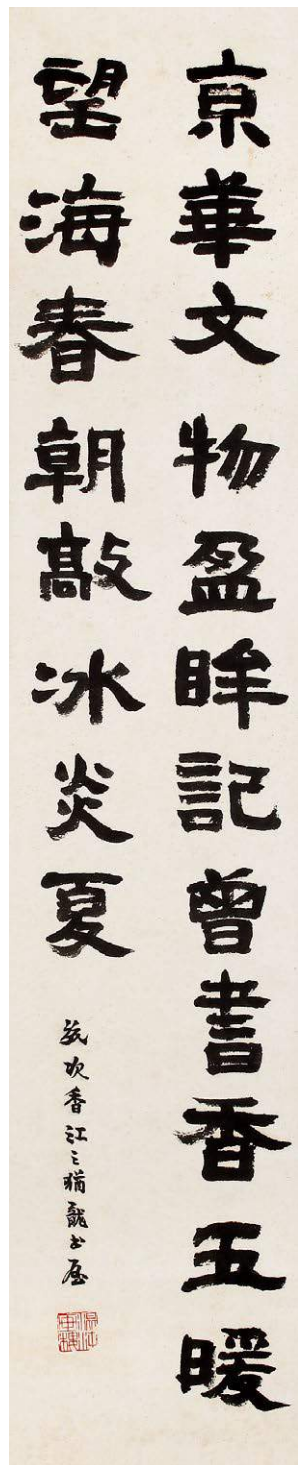 京華文物盈眸記曾書香五暖
望海春朝敲冰炎夏
旅次香江之猶龍書屋